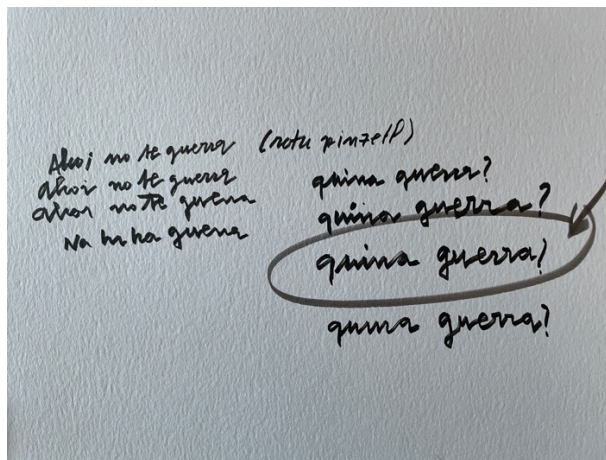 Ahoi no te guerra (rotu pinzell)
ahoi no te guerra
ahoi no te guerra
No hi ha guerra
quina guerra?
quina guerra?
quina guerra?
quina guerra?